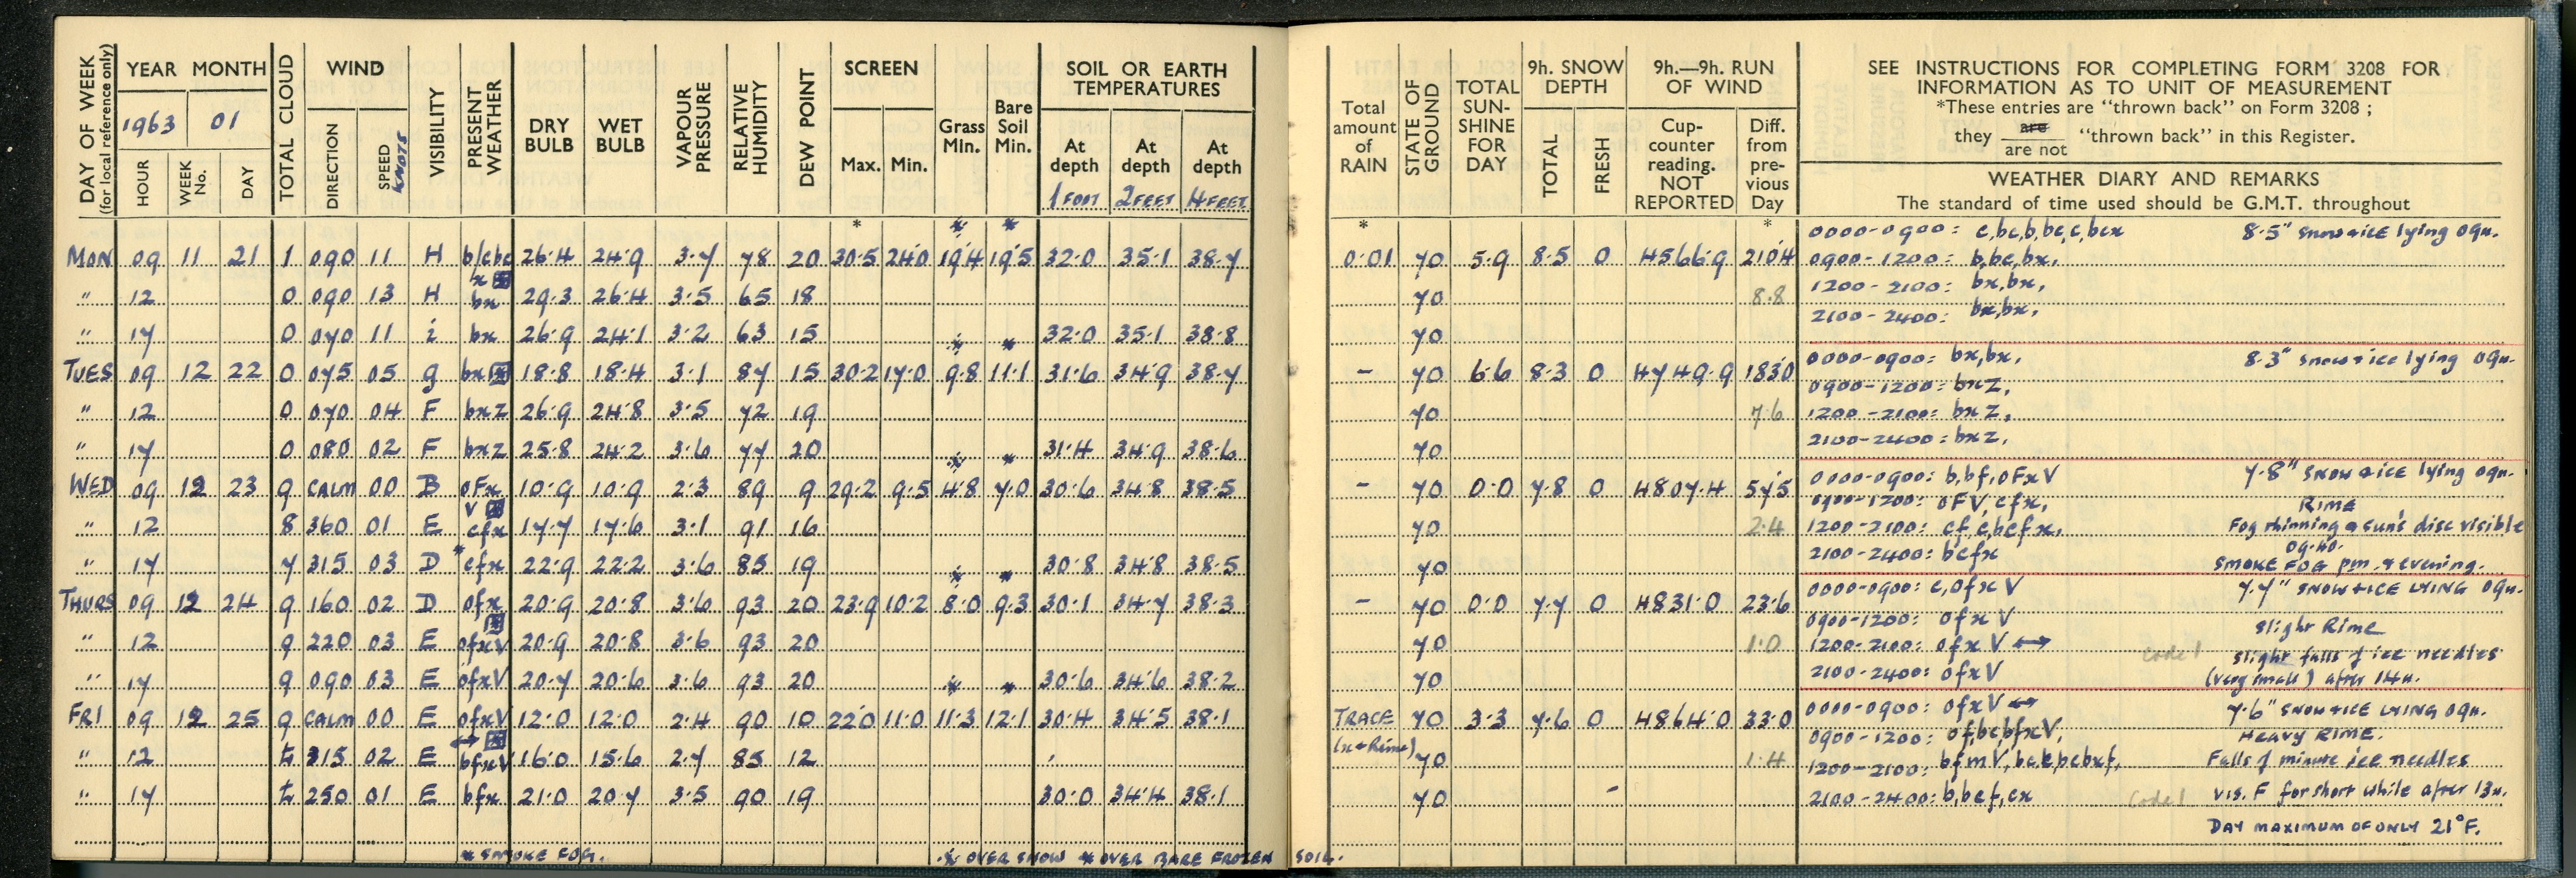 DAY OF WEEK (for local reference only)
YEAR MONTH
1963 01
HOUR WEEK No. DAY
TOTAL CLOUD
WIND
DIRECTION SPEED KNOTS
VISIBILITY
PRESENT WEATHER
DRY BULB
WET BULB
VAPOUR PRESSURE
RELATIVE HUMIDITY
DEW POINT
SCREEN
Max. Min.
Grass Min.
Bare Soil Min.
SOIL OR EARTH TEMPERATURES
At depth 1 FOOT At depth 2 FEET At depth 4 FEET
Total amount of RAIN
STATE OF GROUND
TOTAL SUN-SHINE FOR DAY
9h. SNOW DEPTH
TOTAL FRESH
9h.—9h. RUN OF WIND
Cup-counter reading. NOT REPORTED
Diff. from previous Day
SEE INSTRUCTIONS FOR COMPLETING FORM 3208 FOR
INFORMATION AS TO UNIT OF MEASUREMENT
*These entries are "thrown back" on Form 3208 ;
they are / are not "thrown back" in this Register.
WEATHER DIARY AND REMARKS
The standard of time used should be G.M.T. throughout
MON 09 11 21 1 090 11 H b/cbc x 26.4 24.9 3.7 78 20 30.5 24.0 19.4 19.5 32.0 35.1 38.7 0.01 70 5.9 8.5 0 4566.9 210.4
0000-0900: c,bc,b,bc,c,bcx 8.5" snow+ice lying 09h.
0900-1200: b,bc,bx,
" 12 0 090 13 H bx 29.3 26.4 3.5 65 18 70 8.8
1200-2100: bx,bx,
2100-2400: bx,bx,
" 17 0 070 11 i bx 26.9 24.1 3.2 63 15 32.0 35.1 38.8 70
TUES 09 12 22 0 075 05 g bx 18.8 18.4 3.1 87 15 30.2 17.0 9.8 11.1 31.6 34.9 38.7 - 70 6.6 8.3 0 4749.9 183.0
0000-0900: bx,bx, 8.3" snow+ice lying 09h.
0900-1200: bxz,
" 12 0 070 04 F bxz 26.9 24.8 3.5 72 19 70 7.6
1200-2100: bxz,
" 17 0 080 02 F bxz 25.8 24.2 3.6 77 20 31.4 34.9 38.6 70
2100-2400: bxz,
WED 09 12 23 9 CALM 00 B oFx V 10.9 10.9 2.3 89 9 29.2 9.5 4.8 7.0 30.6 34.8 38.5 - 70 0.0 7.8 0 4807.4 57.5
0000-0900: b,bf,oFxV 7.8" snow+ice lying 09h.
0900-1200: oFV, cfx, Rime
" 12 8 360 01 E cfx 17.7 17.6 3.1 91 16 70 2.4
1200-2100: cf,c,bcfx, Fog thinning + sun's disc visible 09.40.
" 17 7 315 03 D *cfx 22.9 22.2 3.6 85 19 30.8 34.8 38.5 70
2100-2400: bcfx SMOKE FOG pm. + evening.
THURS 09 12 24 9 160 02 D ofx 20.9 20.8 3.6 93 20 23.9 10.2 8.0 9.3 30.1 34.7 38.3 - 70 0.0 7.7 0 4831.0 23.6
0000-0900: c,ofxV 7.7" SNOW+ICE LYING 09h.
0900-1200: ofxV slight Rime
" 12 9 220 03 E ofxV 20.9 20.8 3.6 93 20 70 1.0
1200-2100: ofxV ↔ Code 1 slight falls of ice needles
" 17 9 090 03 E ofxV 20.7 20.6 3.6 93 20 30.6 34.6 38.2 70
2100-2400: ofxV (very small) after 14h.
FRI 09 12 25 9 CALM 00 E ofxV ↔ 12.0 12.0 2.4 90 10 22.0 11.0 11.3 12.1 30.4 34.5 38.1 TRACE (x+Rime) 70 3.3 7.6 0 4864.0 33.0
0000-0900: ofxV ↔ 7.6" SNOW+ICE LYING 09h.
0900-1200: of,bc,bfxV, HEAVY RIME.
" 12 315 02 E bfxV 16.0 15.6 2.7 85 12 70 1.4
1200-2100: bfmV, Falls of minute ice needles
" 17 250 01 E bfx 21.0 20.7 3.5 90 19 30.0 34.4 38.1 70 -
2100-2400: b,bcf,cx Code 1 vis. F for short while after 13h.
DAY MAXIMUM OF ONLY 21°F.
* SMOKE FOG. OVER SNOW * OVER BARE FROZEN SOIL.